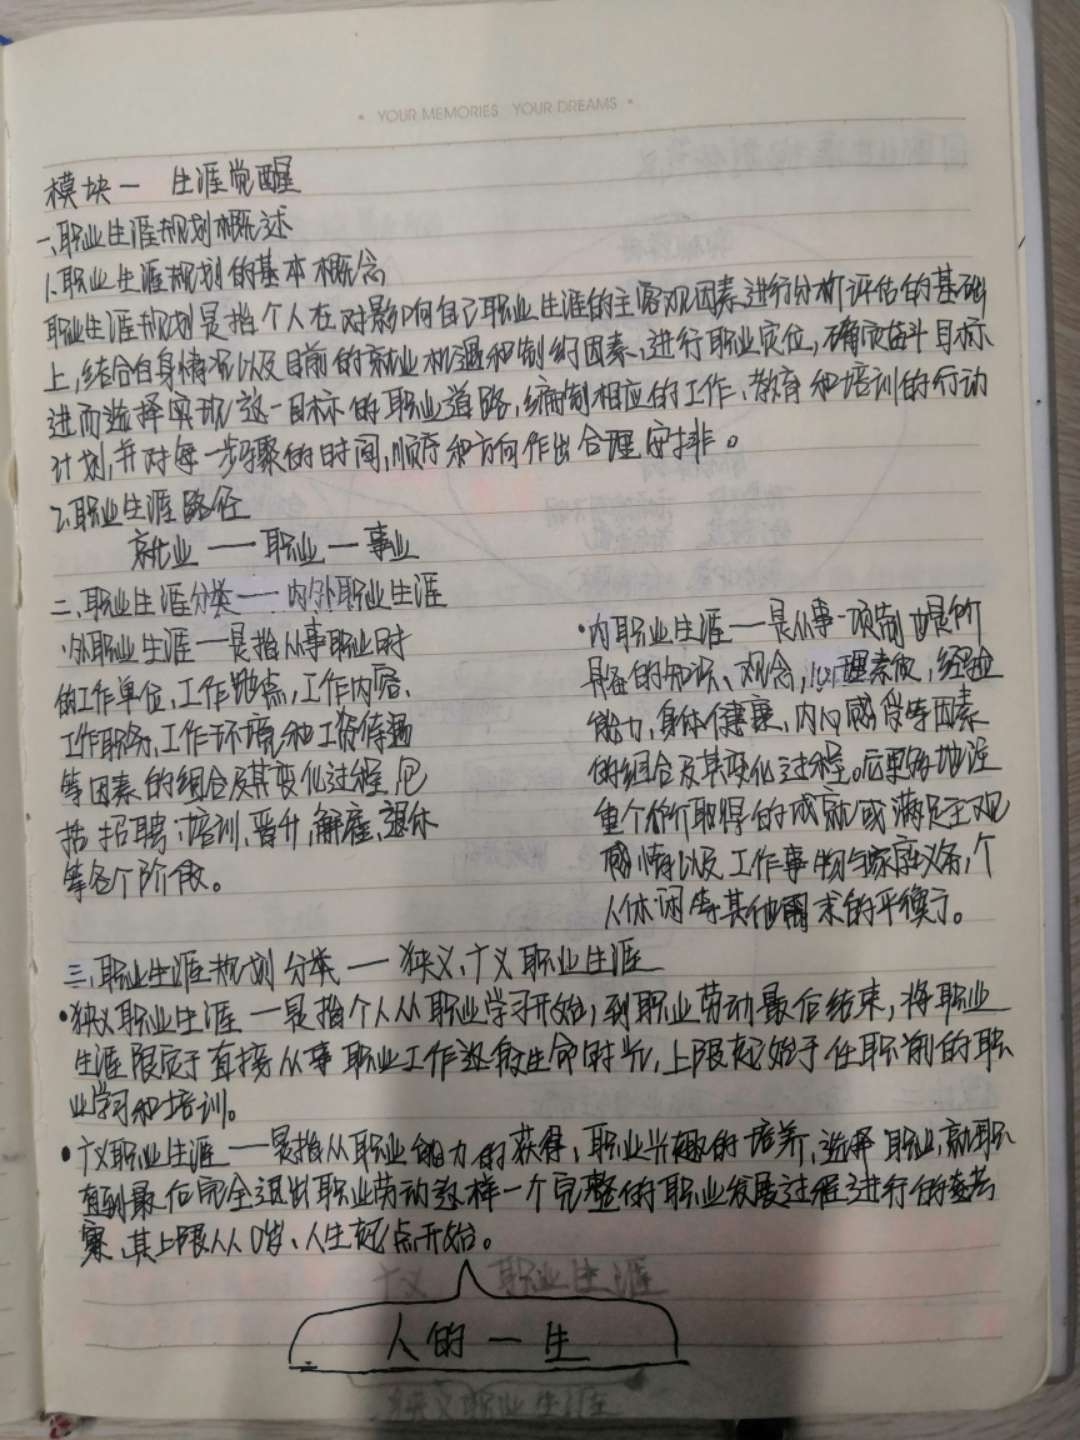 YOUR MEMORIES YOUR DREAMS
模块一 生涯觉醒
一、职业生涯规划概述
1.职业生涯规划的基本概念
职业生涯规划是指个人在对影响自己职业生涯的主客观因素进行分析评估的基础
上,结合自身情况以及目前的就业机遇和制约因素,进行职业定位,确定奋斗目标
进而选择实现这一目标的职业道路,编制相应的工作、教育和培训的行动
计划,并对每一步骤的时间,顺序和方向作出合理安排。
2.职业生涯路径
就业——职业—事业
二、职业生涯分类——内外职业生涯
·外职业生涯—是指从事职业时
的工作单位,工作地点,工作内容、
工作职务,工作环境和工资待遇
等因素的组合及其变化过程,包
括招聘、培训,晋升,解雇、退休
等各个阶段。
·内职业生涯—是从事一项制 时所
具备的知识、观念,心理素质,经验
能力,身体健康,内心感受等因素
的组合及其变化过程。应更多地注
重个价取得的成就或满足主观
感情以及工作事物与家庭义务,个
人休闲等其他需求的平衡了。
三、职业生涯规划分类—狭义、广义职业生涯
·狭义职业生涯—是指个人从职业学习开始,到职业劳动最后结束,将职业
生涯限定于直接从事职业工作这段生命时光,上限起始于任职前的职
业学习和培训。
·广义职业生涯—是指从职业能力的获得,职业兴趣的培养,选择职业,就职
直到最后完全退出职业劳动这样一个完整的职业发展过程进行的考
察,其上限从从0岁、人生起点开始。
广义 职业生涯
人的一生
狭义职业生涯